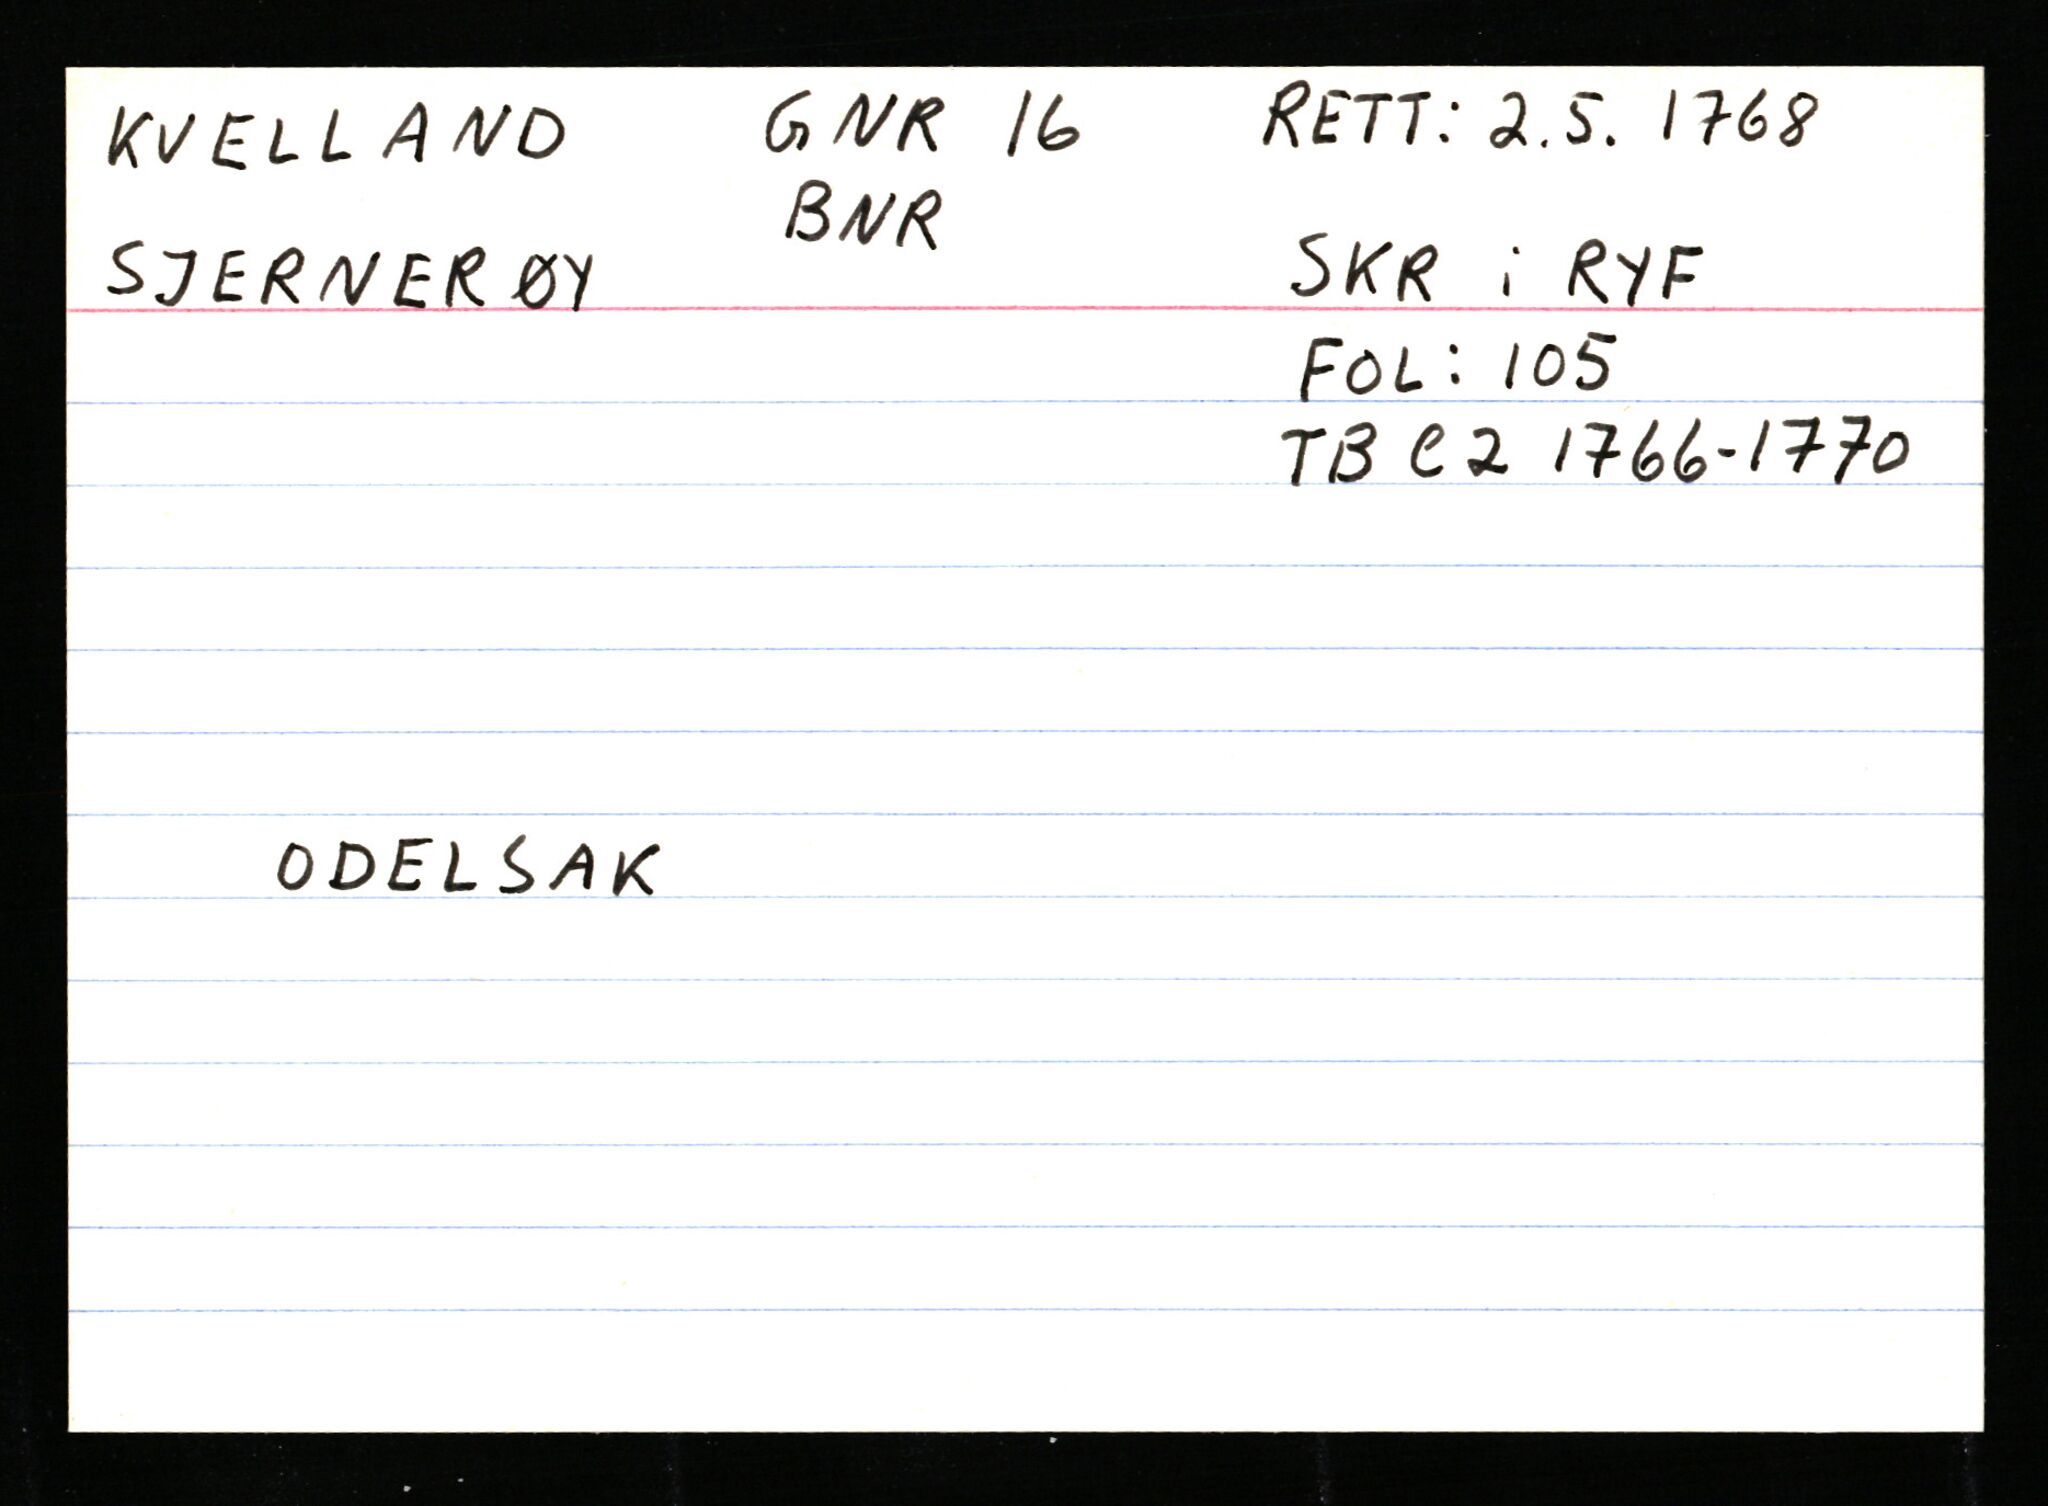 KVELLAND GNR 16 RETT: 2.5. 1768
BNR
SJERNERØY SKR i RYF
FOL: 105
TB C2 1766-1770
ODELSAK